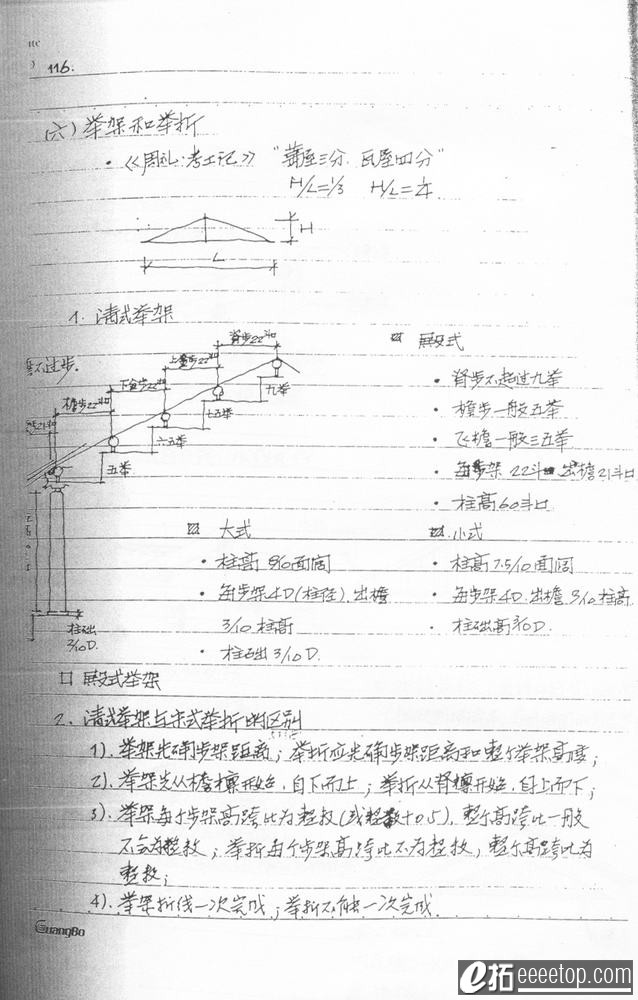 116.
(六) 举架和举折
• 《周礼·考工记》 "葺屋三分 瓦屋四分"
H/L=1/3 H/L=1/4
H
L
1. 清式举架
脊步22斗口
上金步22斗口
下金步22斗口
檐步22斗口
九举
七五举
六五举
五举
柱础
3/10D.
殿式
• 脊步不超过九举
• 檐步一般五举
• 飞檐一般三五举
• 每步架 22斗口 出檐21斗口
• 柱高60斗口
大式
• 柱高 8/10面阔
• 每步架4D(柱径). 出檐
3/10 柱高
• 柱础 3/10 D.
小式
• 柱高 7.5/10面阔
• 每步架4D. 出檐 3/10 柱高
• 柱础高3/10D.
口 殿式举架
2. 清式举架与宋式举折的区别
1). 举架先确步架距离; 举折应先确步架距离和整个举架高度;
2). 举架先从檐檩开始, 自下而上; 举折从脊檩开始, 自上而下;
3). 举架每个步架高跨比为整数(或整数+0.5), 整个高跨比一般
不会为整数; 举折每个步架高跨比不为整数, 整个高跨比为
整数;
4). 举架折线一次完成; 举折不能一次完成.
GuangBo
e拓 eeeetop.com